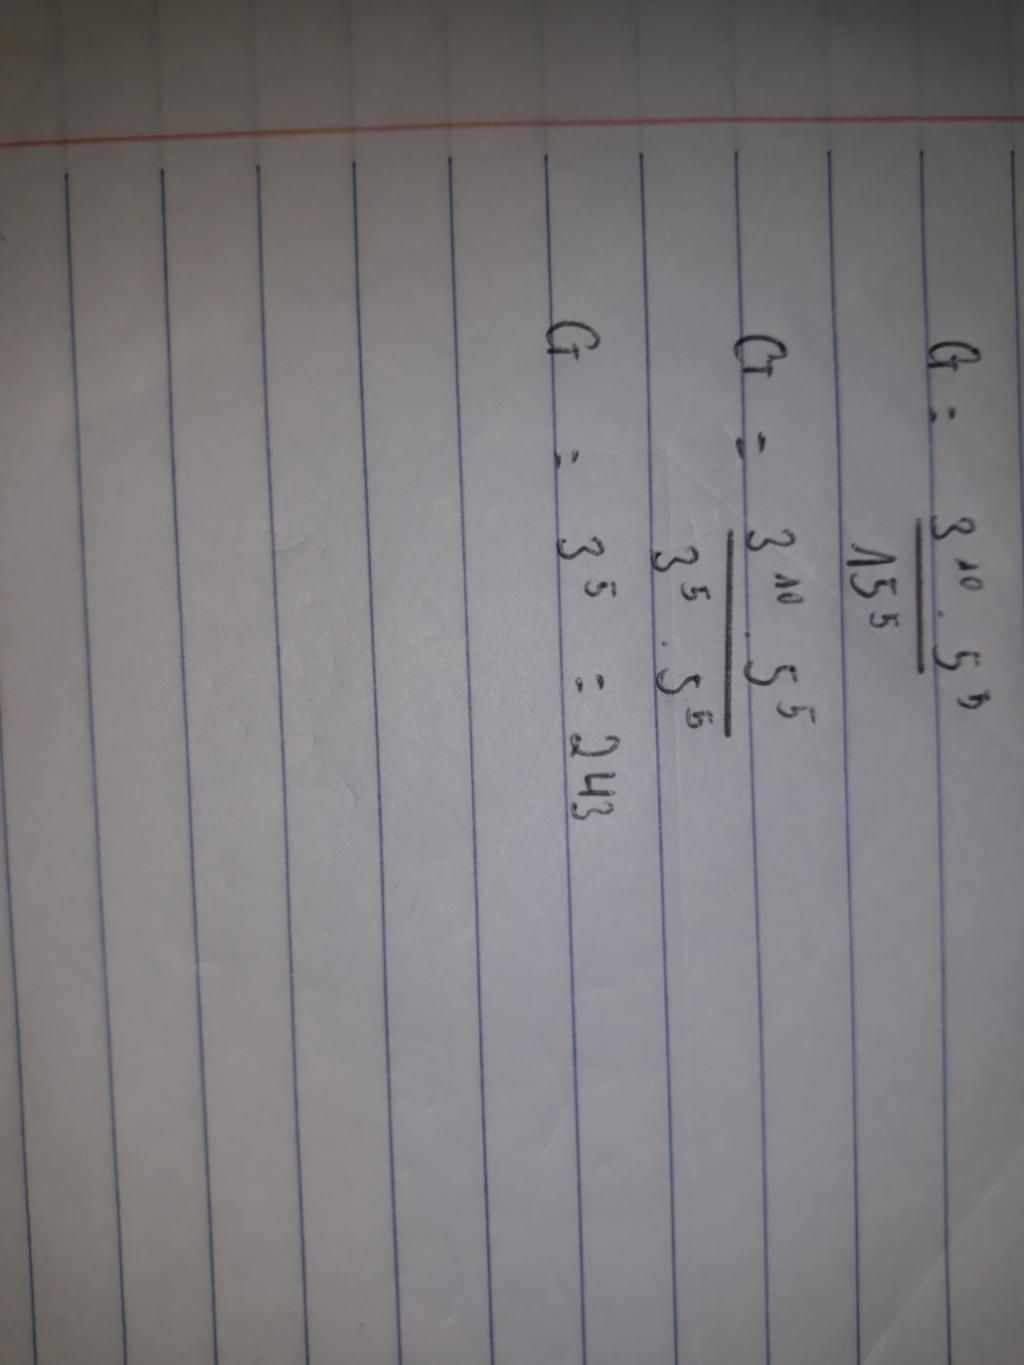 G = 3¹⁰ . 5⁵
15⁵
G = 3¹⁰ . 5⁵
3⁵ . 5⁵
G = 3⁵ = 243